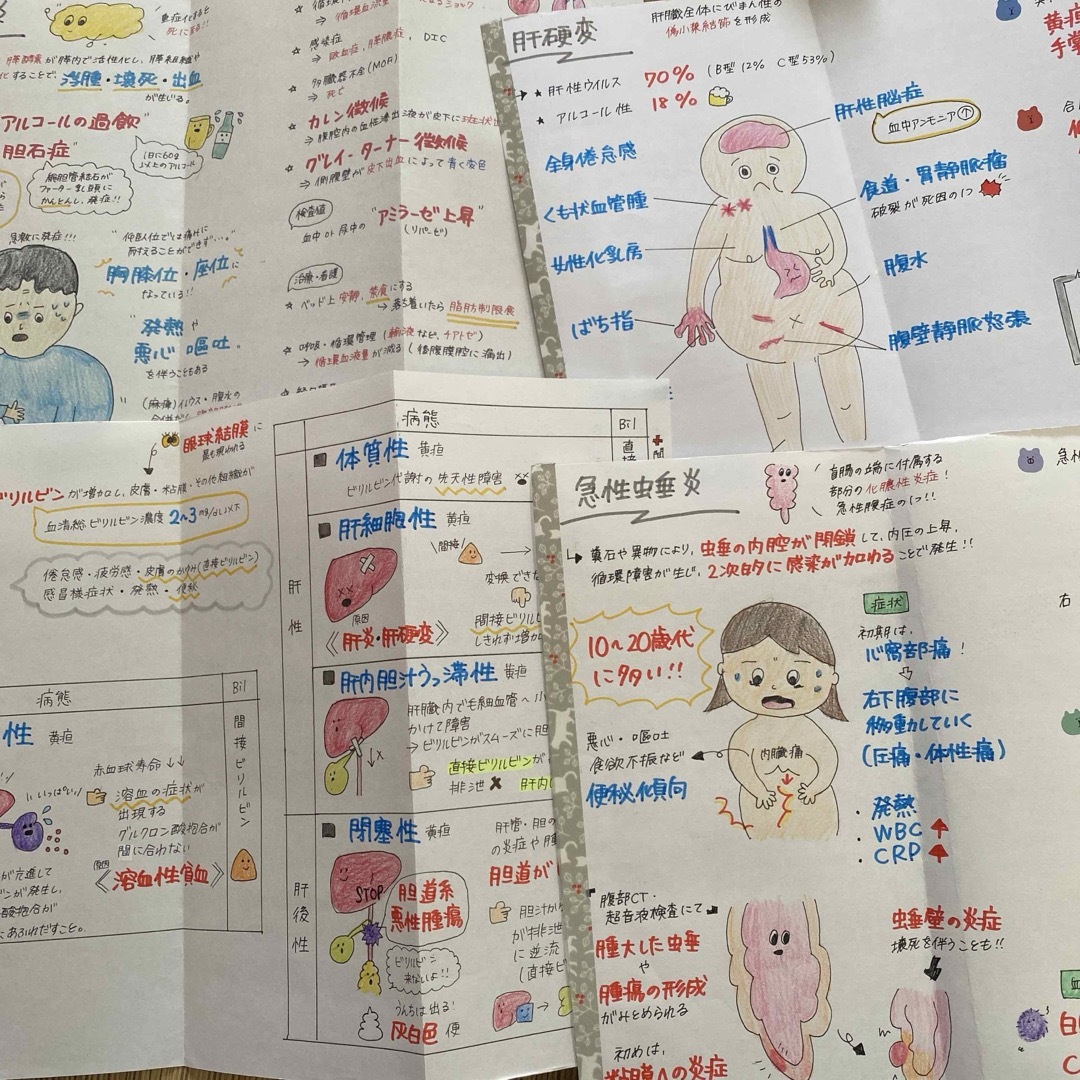 重症化すると
死に至る!!
膵酵素が膵内で活性化し、膵組織や
化することで、浮腫・壊死・出血
が生じる。
アルコールの過飲
1日に60g
以上のアルコール
胆石症"
総胆管結石が
ファーター乳頭に
かんとんし、発症!!
急激に発症!!!
"仰臥位では痛みに
耐えることができず…。"
胸膝位・座位に
なっている!!
"発熱や
悪心 嘔吐。
を伴うこともある
(麻痺)イレウス・腹水の
⇒循環血液量
感染症
⇒敗血症、膵膿瘍、DIC
多臓器不全(MOF)
⇒死亡
カレン徴候
⇒腹腔内の血性滲出液が皮下に斑症状
グレイ・ターナー徴候
⇒側腹壁が皮下出血によって青く変色
検査値
血中or尿中の"アミラーゼ上昇"
(リパーゼ)
治療・看護
★ ベッド上安静、禁食にする
→落ち着いたら 脂肪制限食
★ 呼吸・循環管理(輸液など、チアトゼ)
→循環血液量が減る(後腹膜腔に漏出)
肝硬変
肝臓全体にびまん性の
偽小葉結節を形成
★ 肝性ウイルス 70% (B型12% C型53%)
★ アルコール性 18%
全身倦怠感
くも状血管腫
女性化乳房
ばち指
肝性脳症
血中アンモニア↑
食道・胃静脈瘤
破裂が死因の1つ
腹水
腹壁静脈怒張
黄疸
手掌
眼球結膜に
最も現われる
ビリルビンが増加し、皮膚・粘膜・その他組織が
血清総ビリルビン濃度 2~3mg/dl以下
倦怠感・疲労感・皮膚のかゆみ(直接ビリルビン)
感冒様症状・発熱・便秘
病態
Bil
性 黄疸
いいっぱい
赤血球寿命↓↓
溶血の症状が
出現する
グルクロン酸抱合が
間に合わない
原因
《溶血性貧血》
間接ビリルビン
が亢進して
ンが発生し、
酸抱合が
にあふれだすこと。
病態
Bil
肝性
体質性 黄疸
ビリルビン代謝の先天性障害
直接
間
肝細胞性 黄疸
間接
変換でき
原因
《肝炎・肝硬変》
間接ビリルビ
しきれず増加
肝内胆汁うっ滞性 黄疸
肝臓内で毛細血管~小
かけて障害
→ビリルビンがスムーズに胆
直接ビリルビンが
排泄✖ 肝内
肝後性
閉塞性 黄疸
肝管・胆の
の炎症や腫
STOP
胆道系
悪性腫瘍
胆道が
胆汁が
が排泄
に逆流
(直接ビ
ビリルビン
来ないよ!!
うんちは出る!
灰白色 便
急性虫垂炎
盲腸の端に付属する
部分の化膿性炎症!
急性腹症の1つ!!
糞石や異物により、虫垂の内腔が閉鎖して、内圧の上昇、
循環障害が生じ、2次的に感染が加わることで発生!!
10~20歳代
に多い!!
症状
初期は、
心窩部痛!
右下腹部に
移動していく
(圧痛・体性痛)
内臓痛
悪心・嘔吐
食欲不振など
便秘傾向
・発熱
・WBC↑
・CRP↑
腹部CT・
超音波検査にて
腫大した虫垂
や
腫瘍の形成
がみとめられる
初めは、
粘膜への炎症
虫垂壁の炎症
壊死を伴うことも!!
急性
右